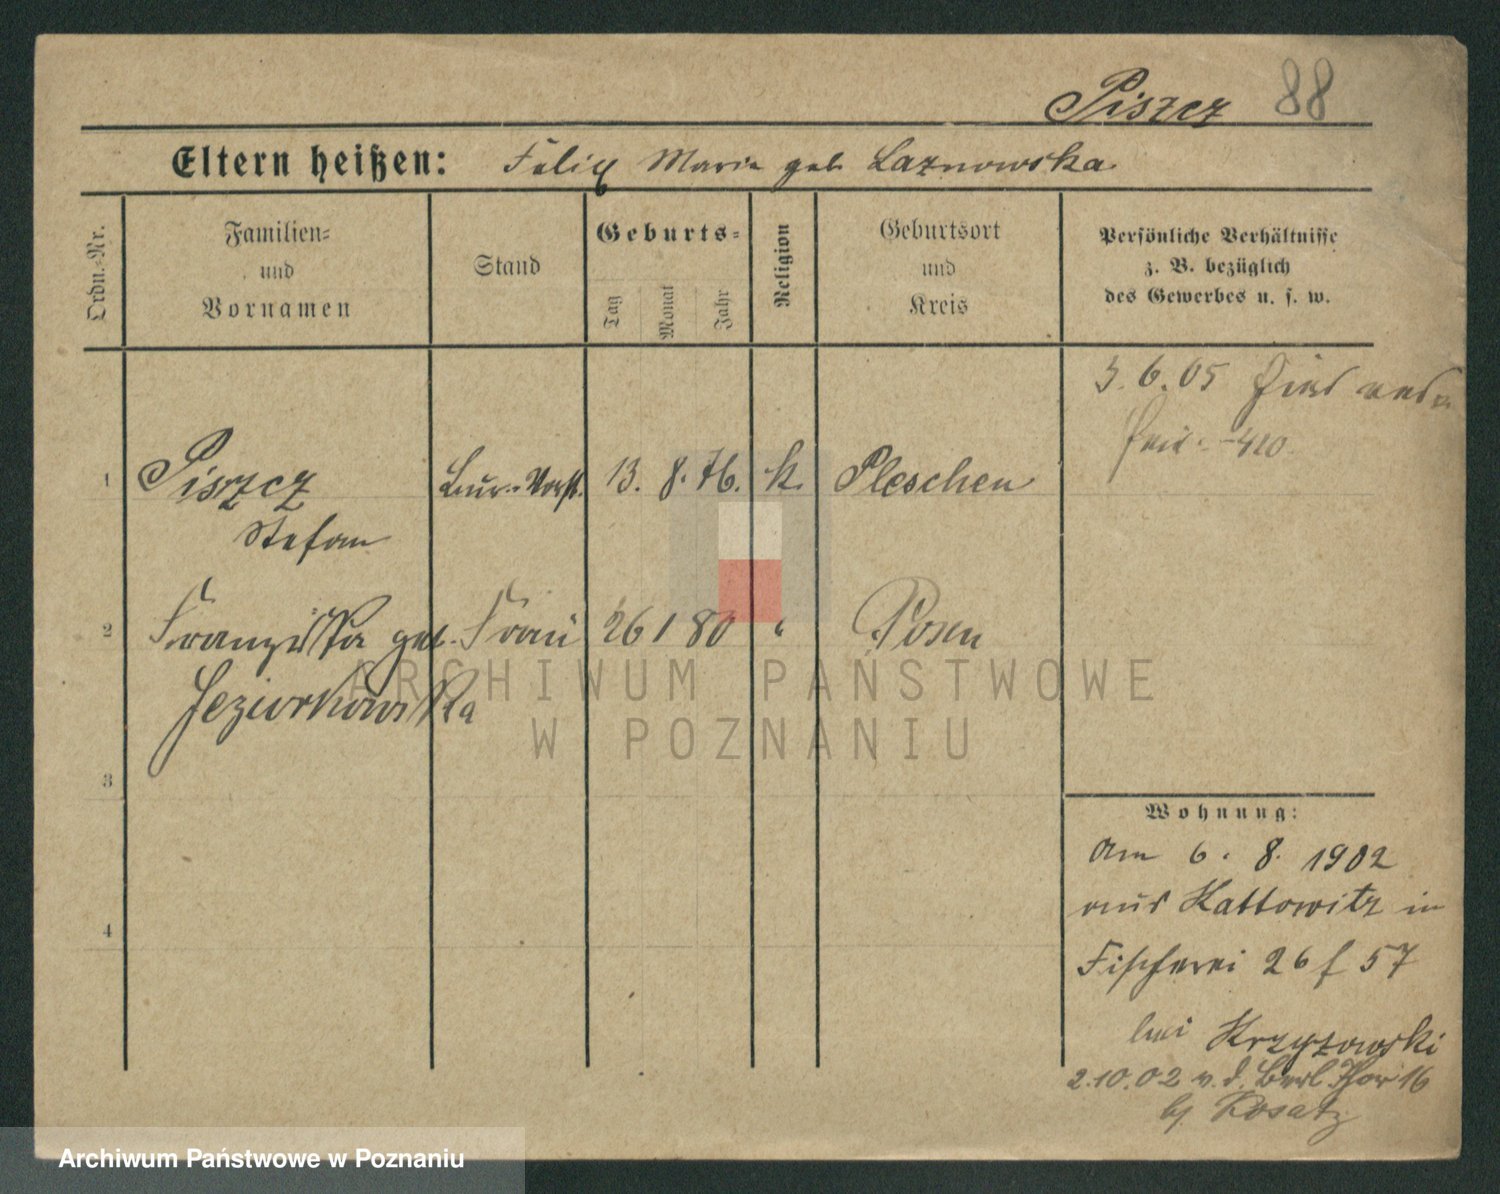 Piszcz 88
Eltern heißen: Felix Maria geb. Laznowska
Ordn.-Nr.
Familien-
und
Vornamen
Stand
Geburts-
Tag
Monat
Jahr
Religion
Geburtsort
und
Kreis
Persönliche Verhältnisse
z. B. bezüglich
des Gewerbes u. s. w.
3. 6. 05
1 Piszcz 13. 8. 76. k. Pleschen
Stefan
2 Franziska geb. Frau 26 1 80 " Posen
Jeziorkowska
3
4
Wohnung:
Am 6. 8. 1902
aus Kattowitz in
Fischerei 26 f 57
bei Krzyzowski
2.10.02 v. d. Berl. Thor 16
bj Kosatz
ARCHIWUM PAŃSTWOWE
W POZNANIU
Archiwum Państwowe w Poznaniu